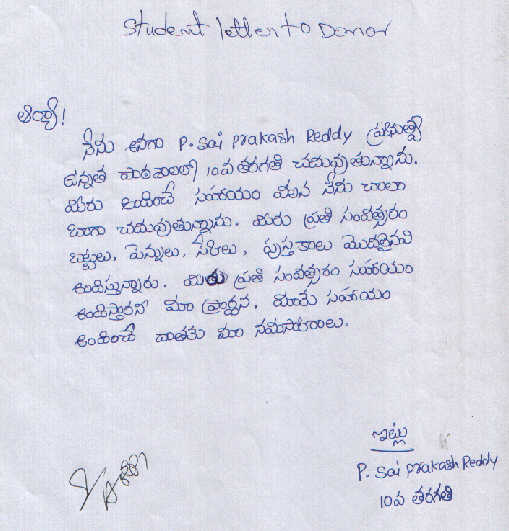 Student letter to Donor
అయ్యా!
నేను అనగా P. Sai Prakash Reddy ప్రభుత్వ
ఉన్నత పాఠశాలలో 10వ తరగతి చదువుతున్నాను.
మీరు చేసే సహాయం వలన నేను చాలా
బాగా చదువుతున్నాను. మీరు ప్రతి సంవత్సరం
బట్టలు, పెన్నులు, పుస్తకాలు మొదలైనవి
అందిస్తున్నారు. మీరు ప్రతి సంవత్సరం సహాయం
అందిస్తారని మా ప్రార్థన. మాకు సహాయం
మా నమస్కారాలు.
ఇట్లు
P. Sai Prakash Reddy
10వ తరగతి